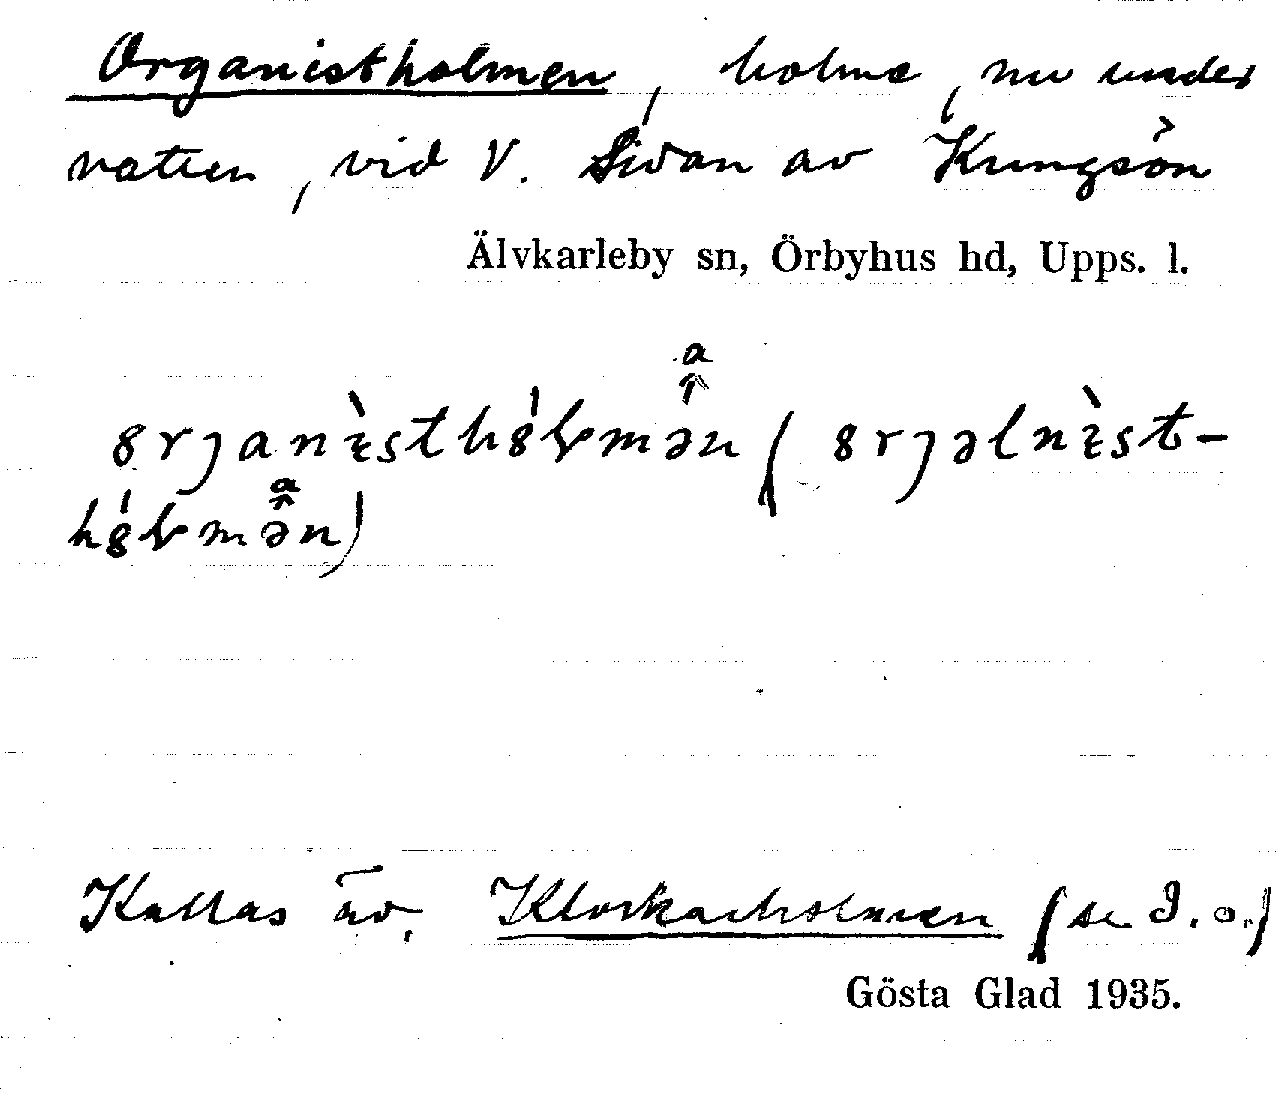 Organistholmen, holme, nu under
vatten, vid V. Sidan av Kungsön
Älvkarleby sn, Örbyhus hd, Upps. l.
Kallas äv. Klockarholmen (se d. o.)
Gösta Glad 1935.